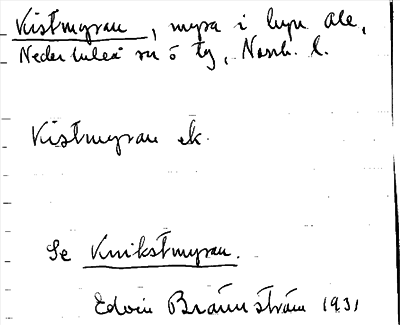 Kistmyran, myra i byn Ale,
Nederluleå sn o tg, Norrb. l.
Kistmyran ek.
Se Knikstmyran.
Edvin Brännström 1931